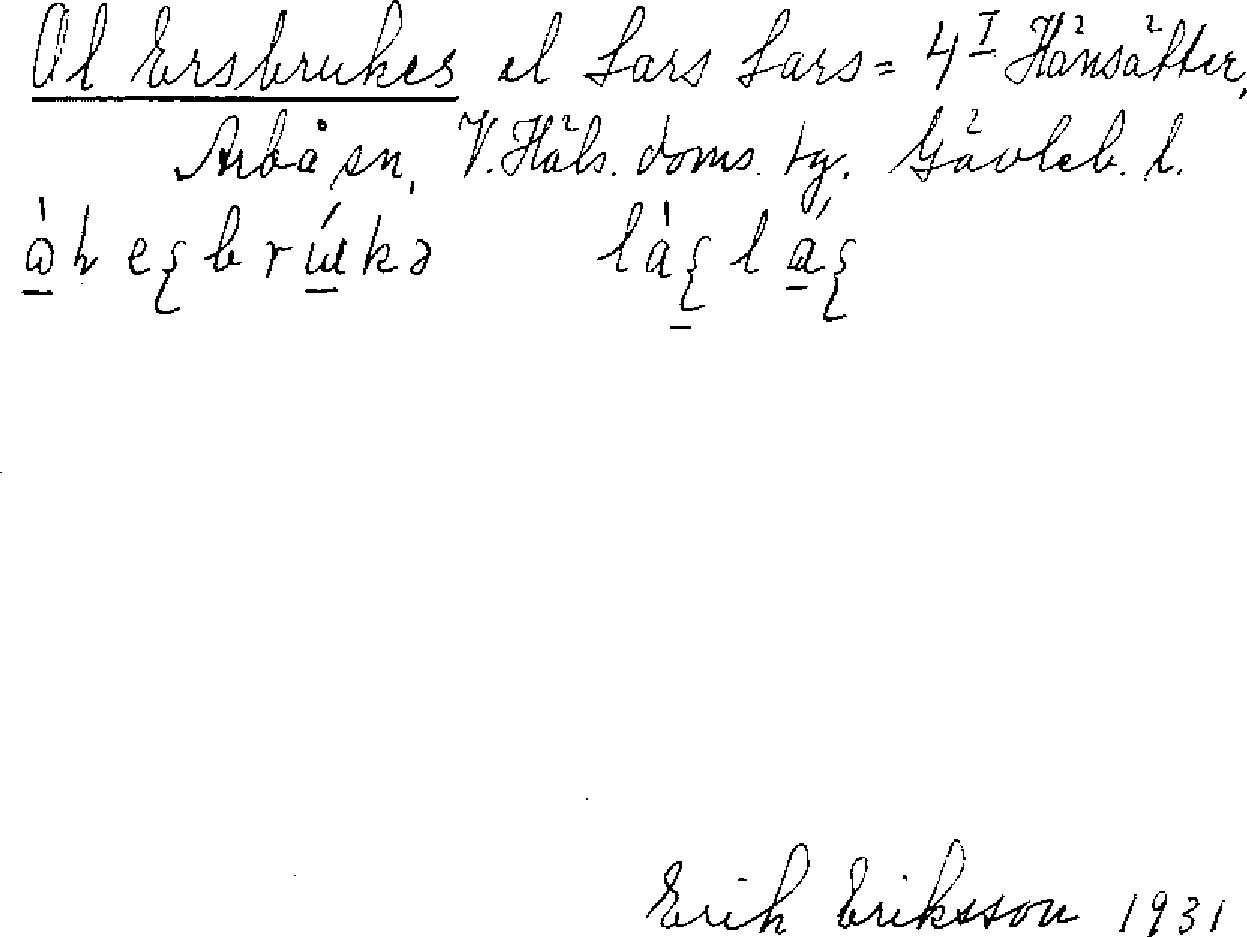 Ol Ersbrukes el Lars Lars = 4 I Hänsätter,
Arbå sn, V. Häls. doms. tg. Gävleb. l.
Erik Eriksson 1931